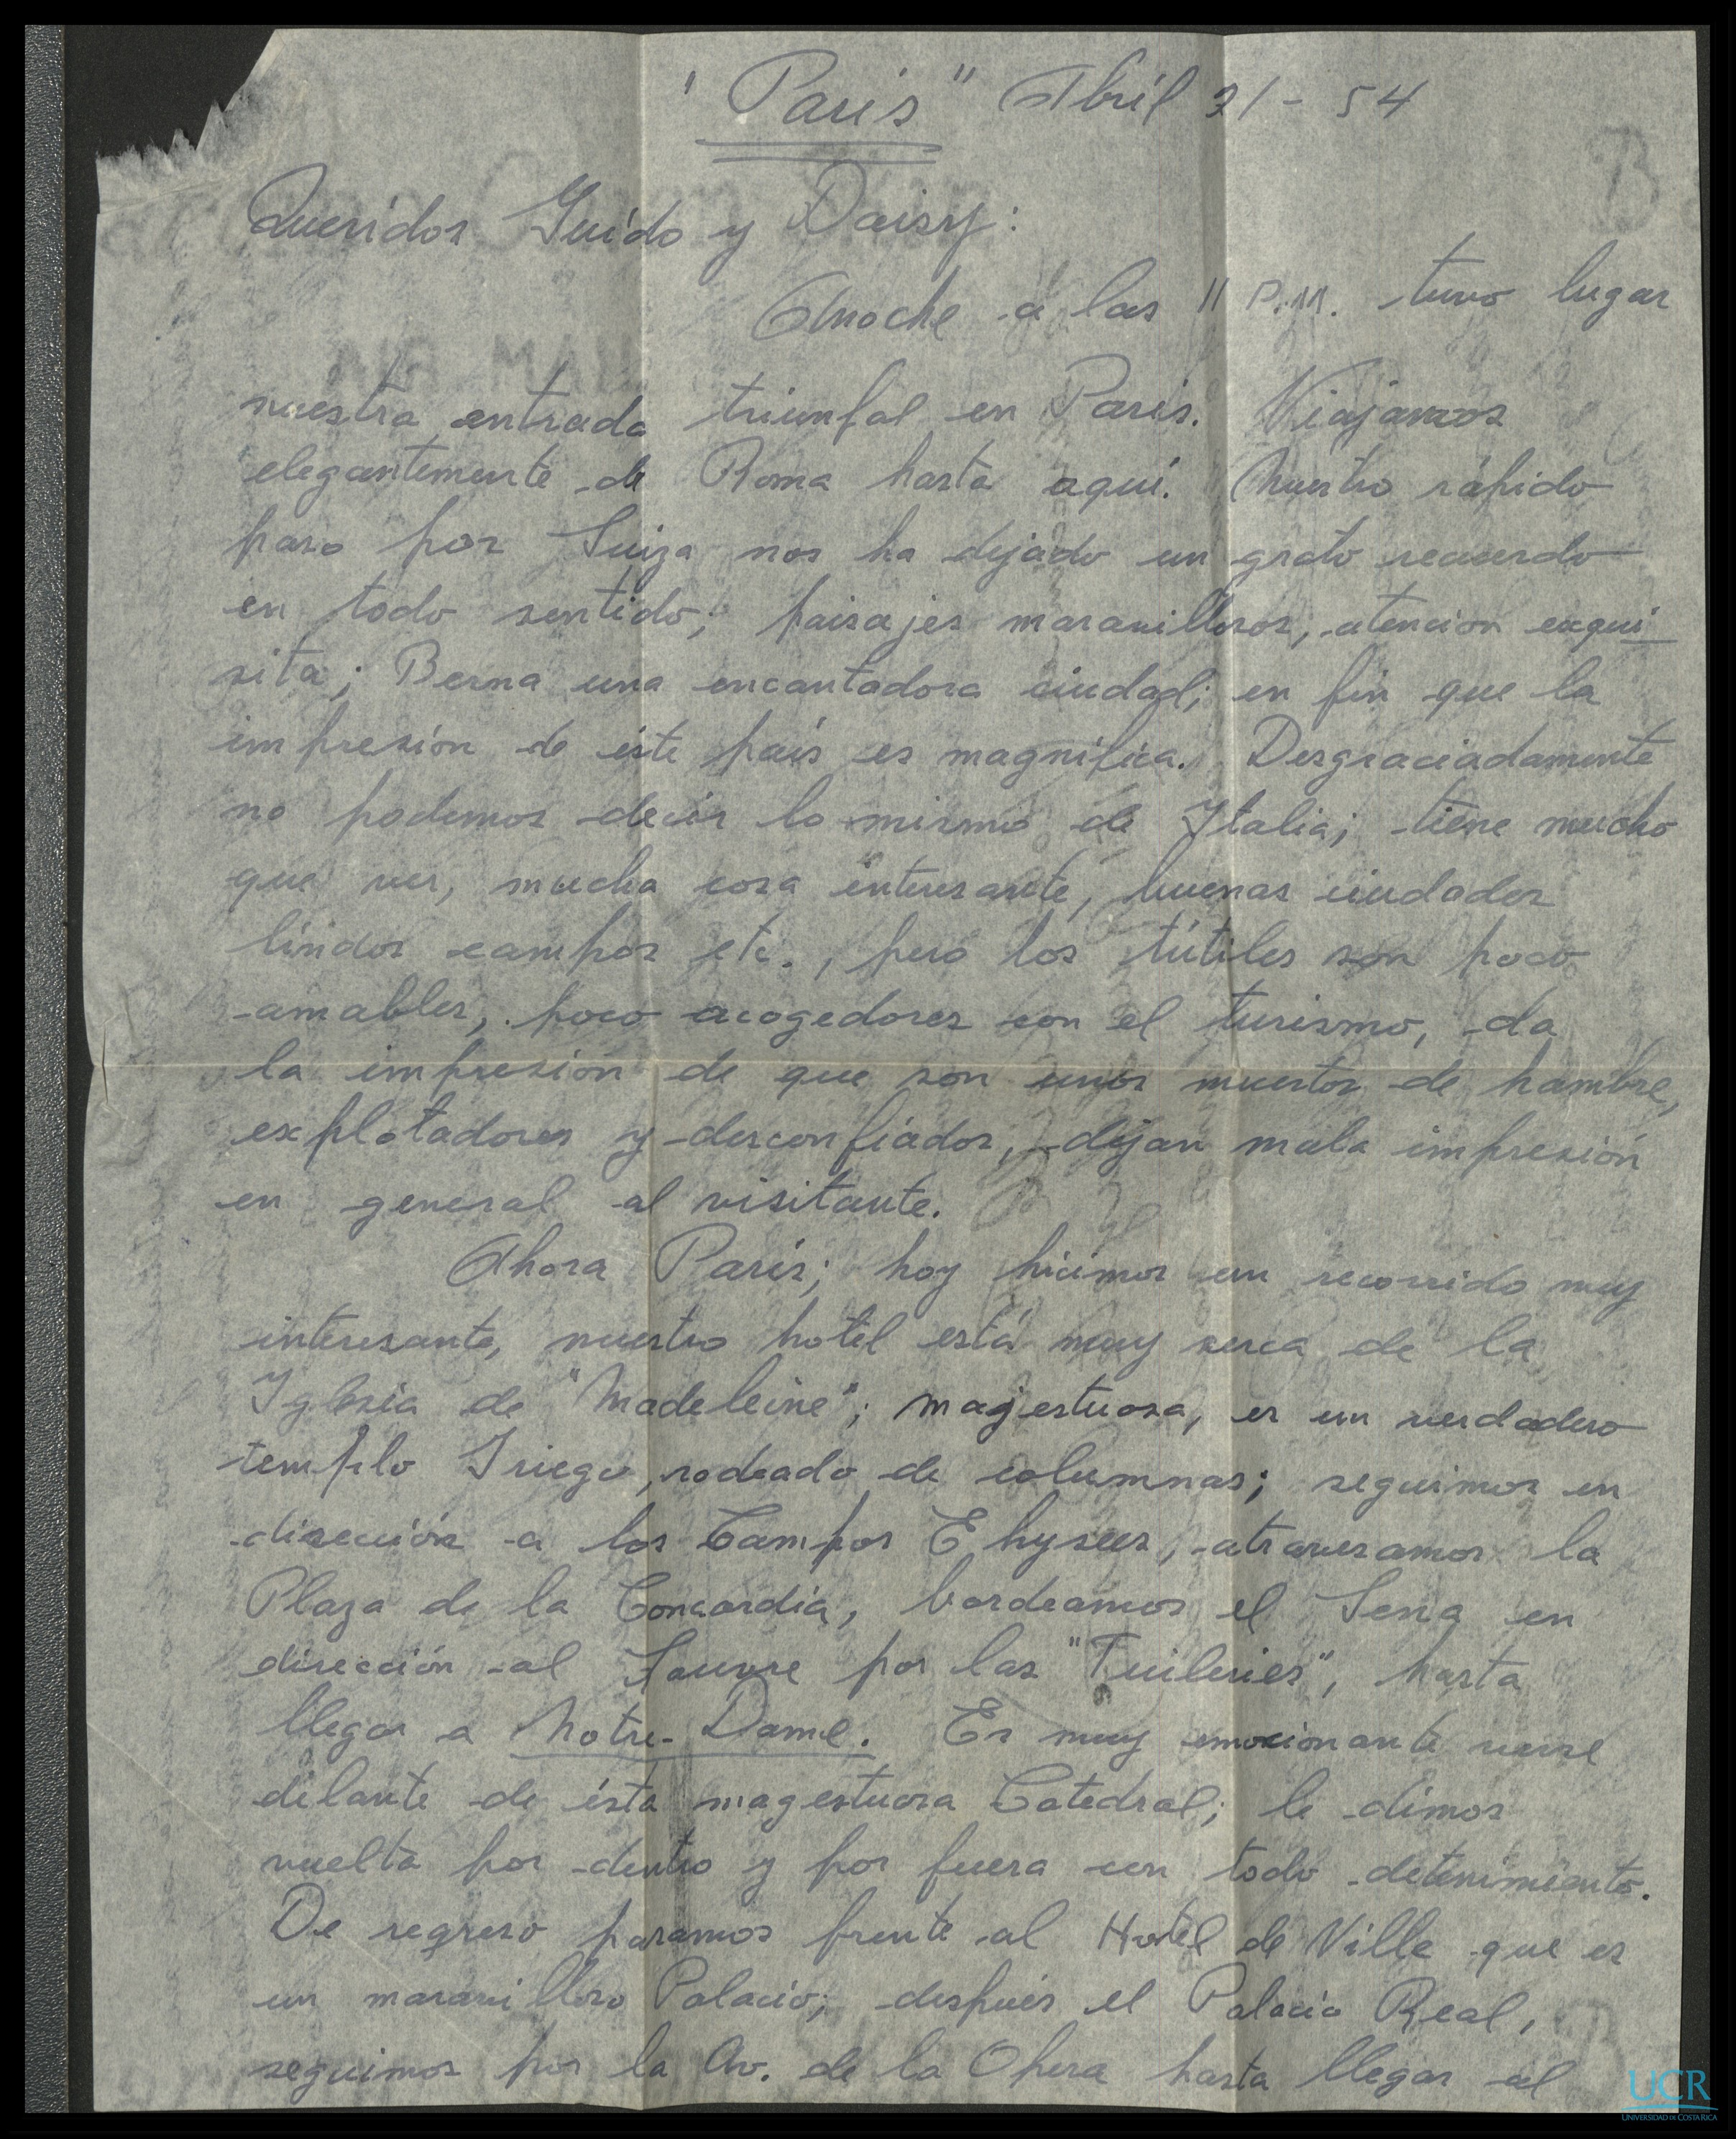 "Paris" Abril 21 - 54
Queridos Guido y Daisy:
Anoche a las 11 P.M. tuvo lugar
nuestra entrada triunfal en Paris. Viajamos
elegantemente de Roma hasta aquí. Nuestro rápido
paso por Suiza nos ha dejado un grato recuerdo
en todo sentido; paisajes maravillosos, atencion exqui
sita; Berna una encantadora ciudad; en fin que la
impresión de éste país es magnífica. Desgraciadamente
no podemos decir lo mismo de Italia; tiene mucho
que ver, mucha cosa interesante, buenas ciudades
lindos campos etc., pero los tútiles son poco
amables, poco acogedores con el turismo, da
la impresión de que son unos muertos de hambre,
explotadores y desconfiados, dejan mala impresión
en general al visitante.
Ahora Paris; hoy hicimos un recorrido muy
interesante, nuestro hotel está muy cerca de la
Iglesia de "Madeleine"; majestuosa, es un verdadero
templo Griego, rodeado de columnas; seguimos en
dirección a los Campos Elysees, atravesamos la
Plaza de la Concordia, bordeamos el Sena en
dirección al Louvre por las "Tuileries", hasta
llegar a Notre-Dame. Es muy emocionante verse
delante de ésta magestuosa Catedral; le dimos
vuelta por dentro y por fuera con todo detenimiento.
De regreso pasamos frente al Hotel de Ville que es
un maravilloso Palacio; después el Palacio Real,
seguimos por la Av. de la Opera hasta llegar al
B
UCR
UNIVERSIDAD DE COSTA RICA